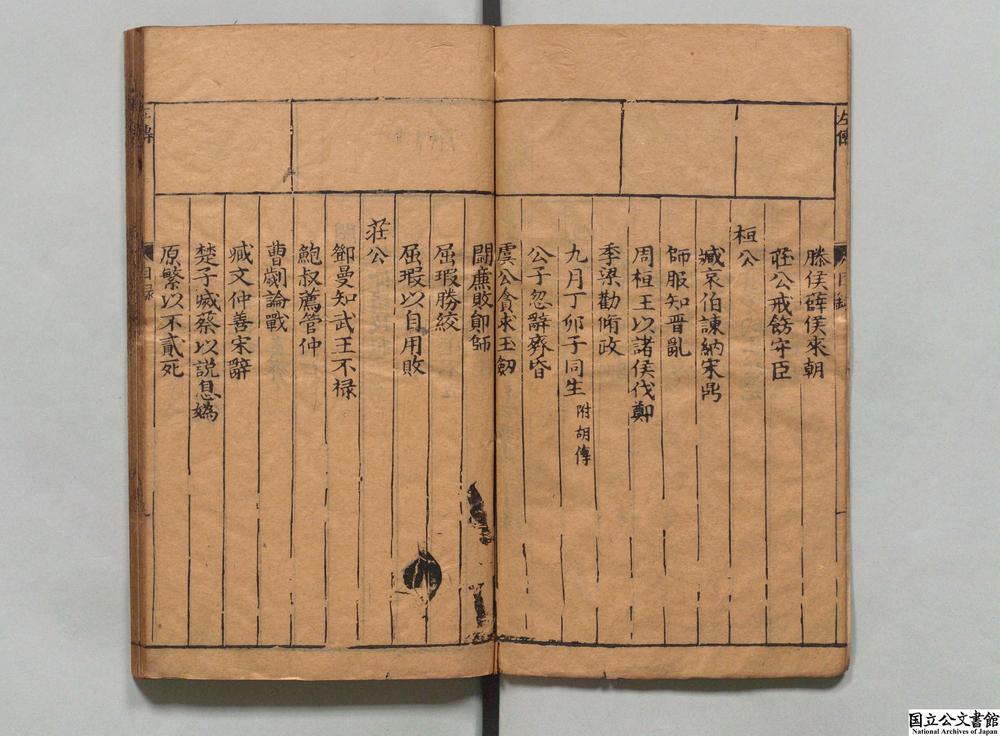 左傳
滕侯薛侯來朝
莊公戒飭守臣
桓公
臧哀伯諫納宋鼎
師服知晉亂
周桓王以諸侯伐鄭
季梁勸脩政
九月丁夘子同生 附胡傳
公子忽辭齊昏
虞公貪求玉劒
鬬廉敗鄖師
屈瑕勝絞
屈瑕以自用敗
莊公
鄧曼知武王不禄
鮑叔薦管仲
曹劌論戰
臧文仲善宋辭
楚子滅蔡以説息嬀
原繁以不貳死
左傳
目録
国立公文書館
National Archives of Japan